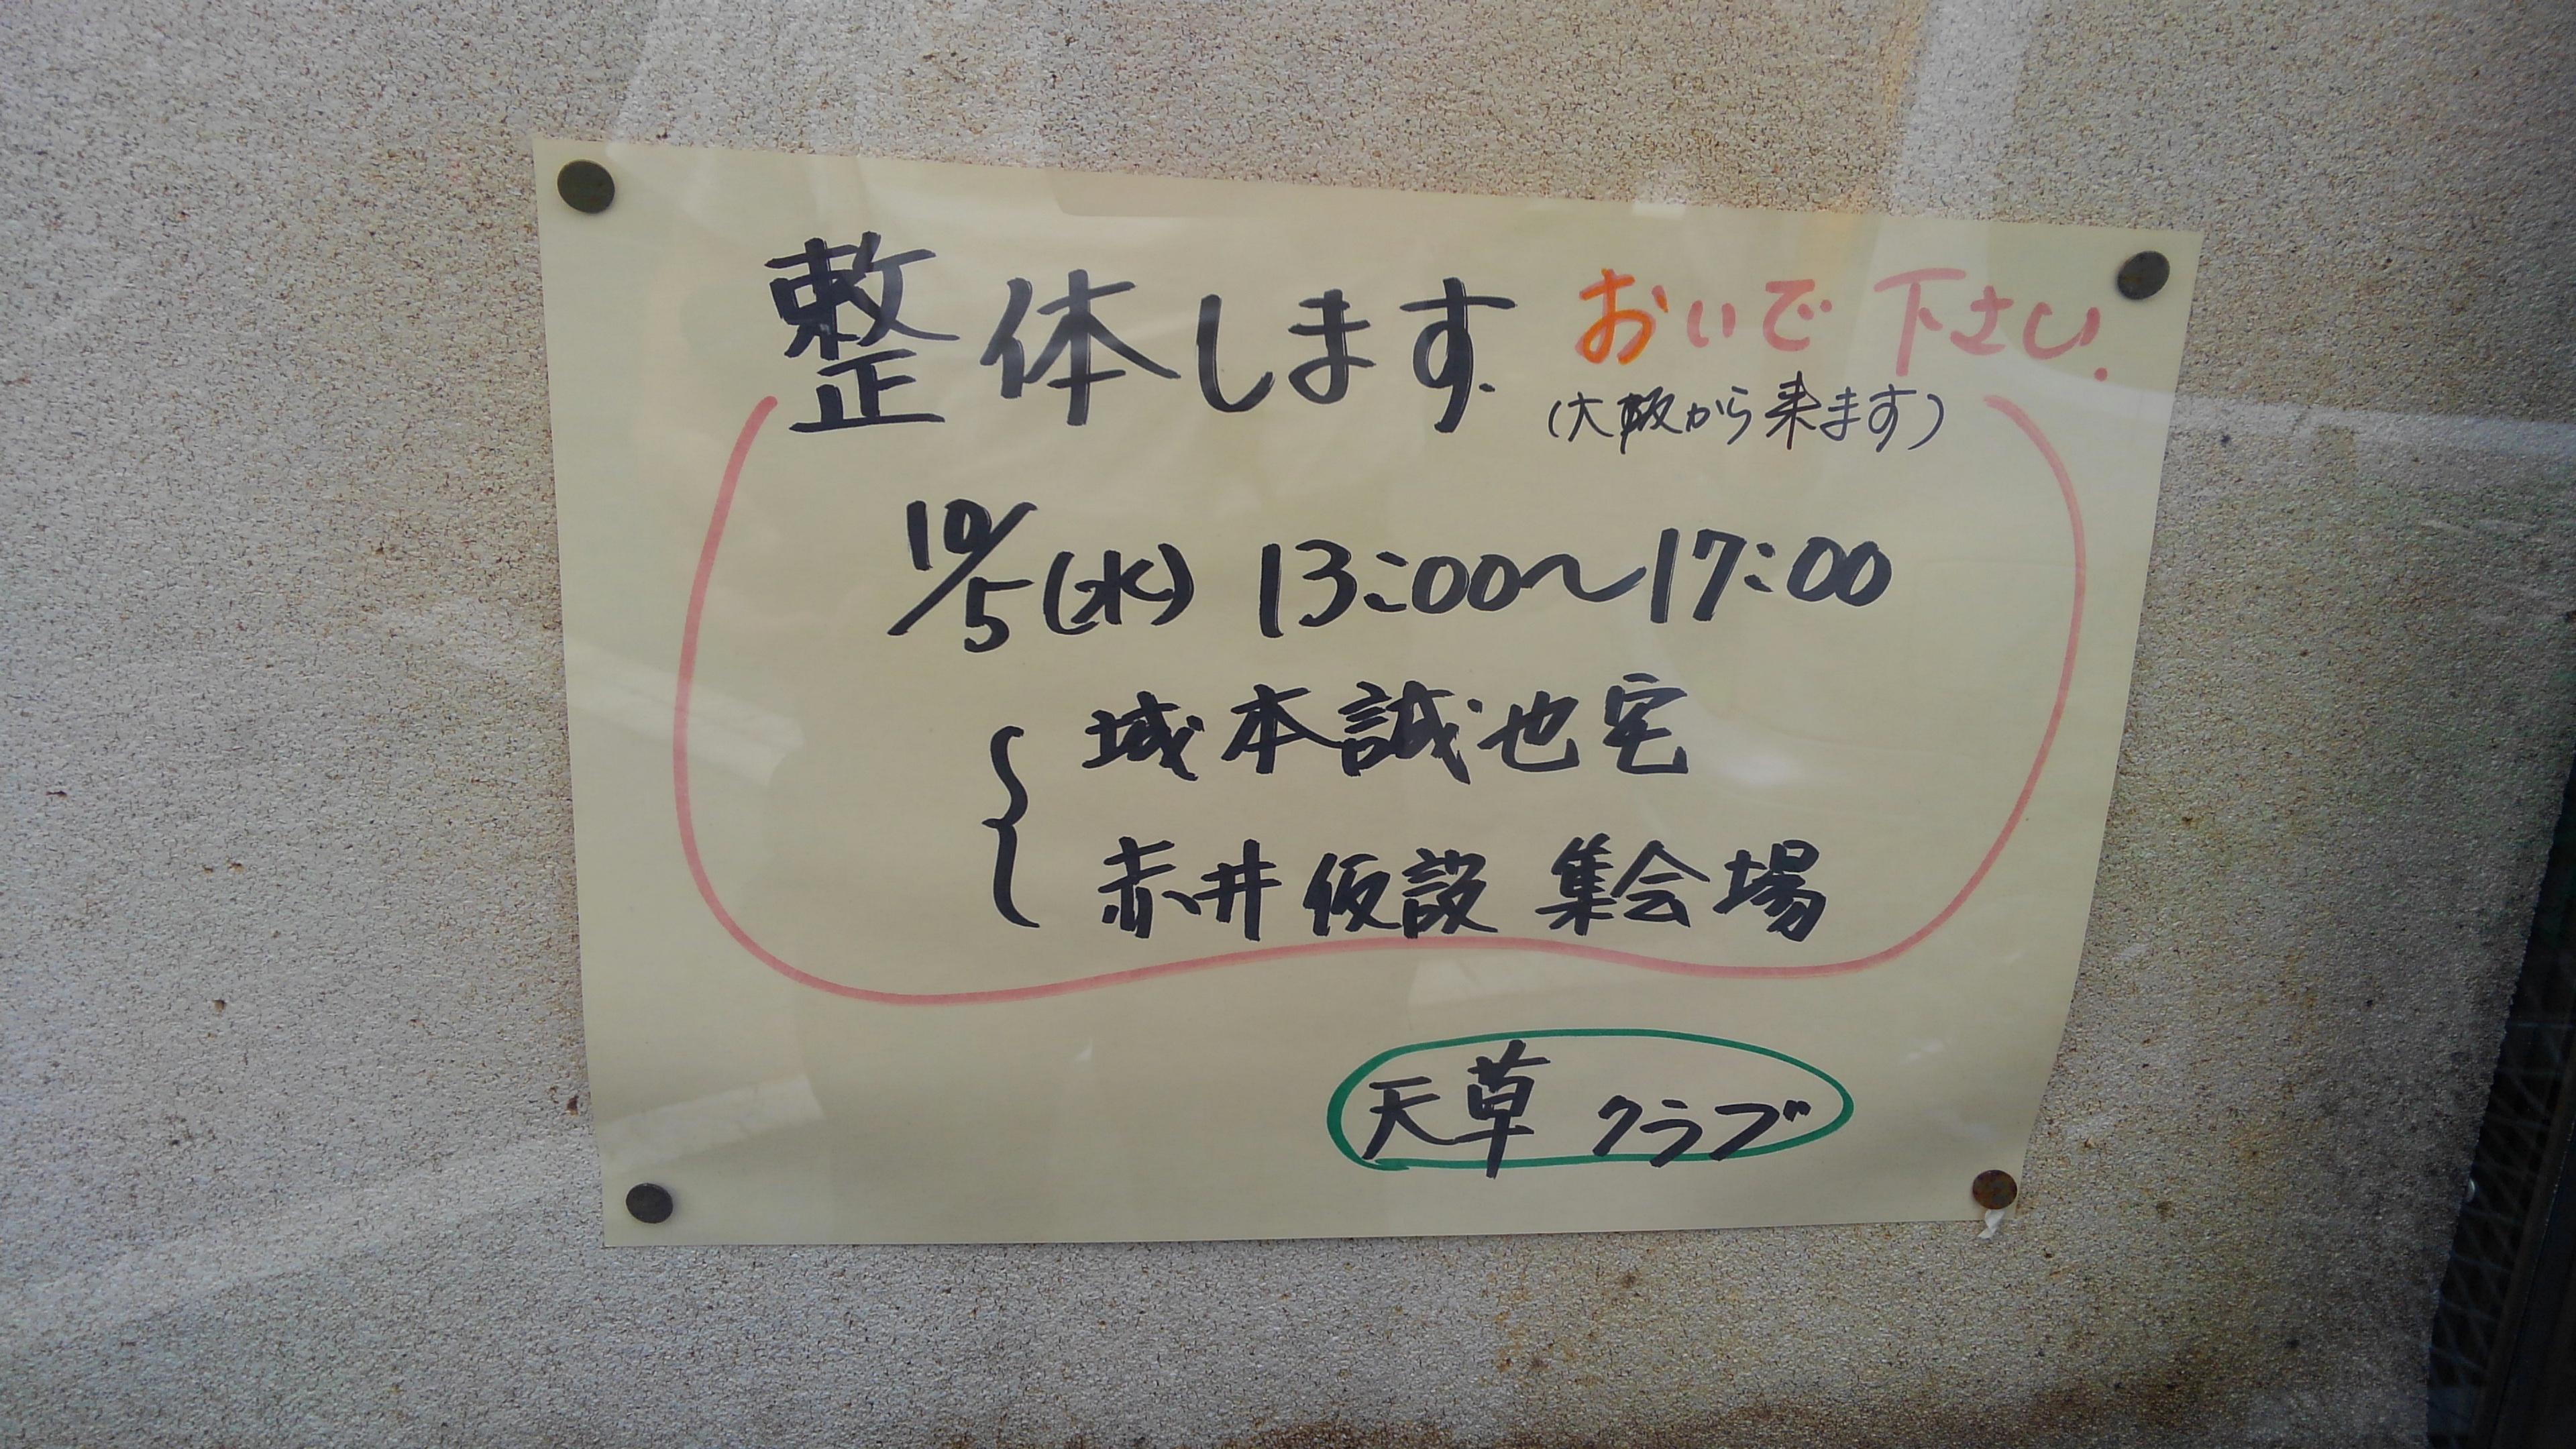 整体します. おいで下さい.
(大阪から来ます)
10/5(水) 13:00〜17:00
城本誠也宅
赤井仮設 集会場
天草クラブ